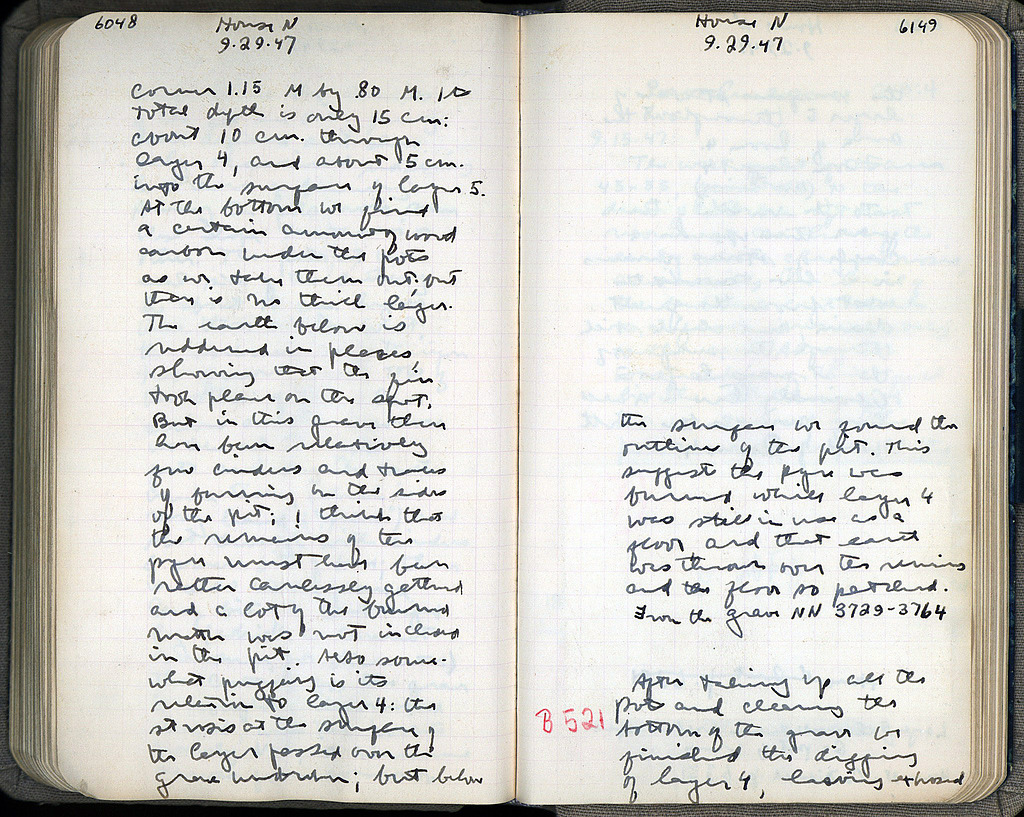 6048
House N
9.29.47
corner 1.15 M by .80 M. Its
total depth is only 15 cm:
about 10 cm. through
layer 4, and about 5 cm.
into the surface of layer 5.
At the bottom we find
a certain amount of wood
carbon under the pots
as we take them out: but
there is no thick layer.
The earth below is
reddened in places,
showing that the fire
took place on the spot.
But in this grave there
have been relatively
few cinders and traces
of burning on the sides
of the pit; I think that
the remains of the
pyre must have been
rather carelessly gathered
and a lot of the burned
matter was not included
in the pit. Also some-
what puzzling is its
relation to layer 4: the
strosis at the surface of
the layer passed over the
grave unbroken; but below
House N
9.29.47
6149
the surface we found the
outline of the pit. This
suggest the pyre was
burned while layer 4
was still in use as a
floor and that earth
was thrown over the remains
and the floor so patched.
From the grave NN 3729-3764
B 521
After taking up all the
pots and clearing the
bottom of the grave we
finished the digging
of layer 4, leaving exposed